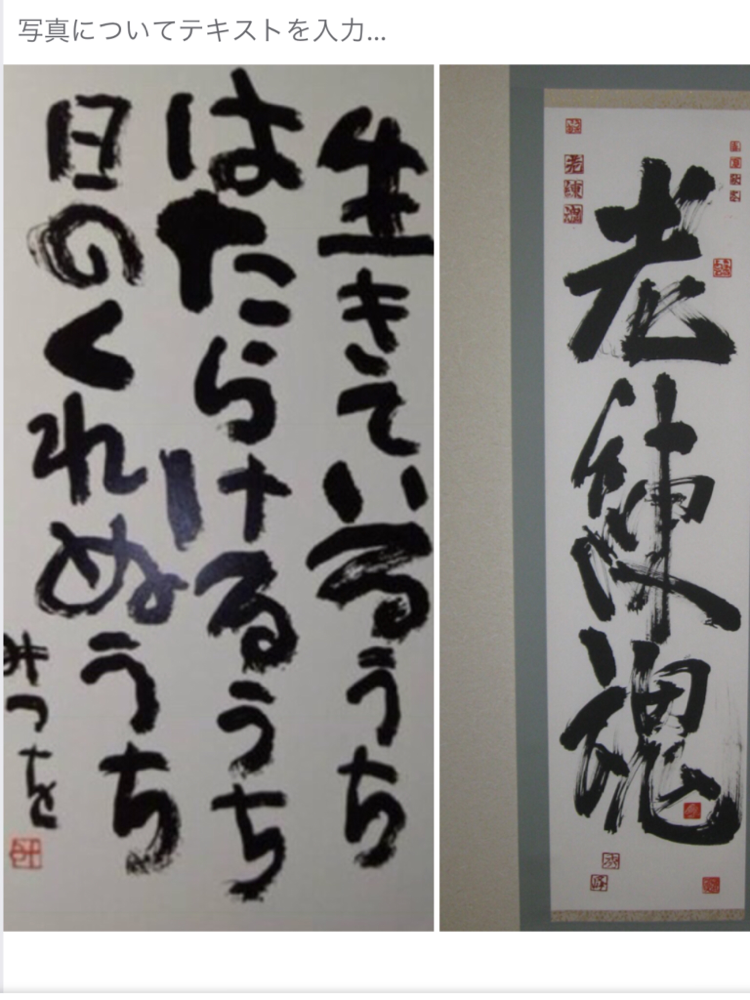 写真についてテキストを入力...
生きているうち
はたらけるうち
日のくれぬうち
みつを
老練魂